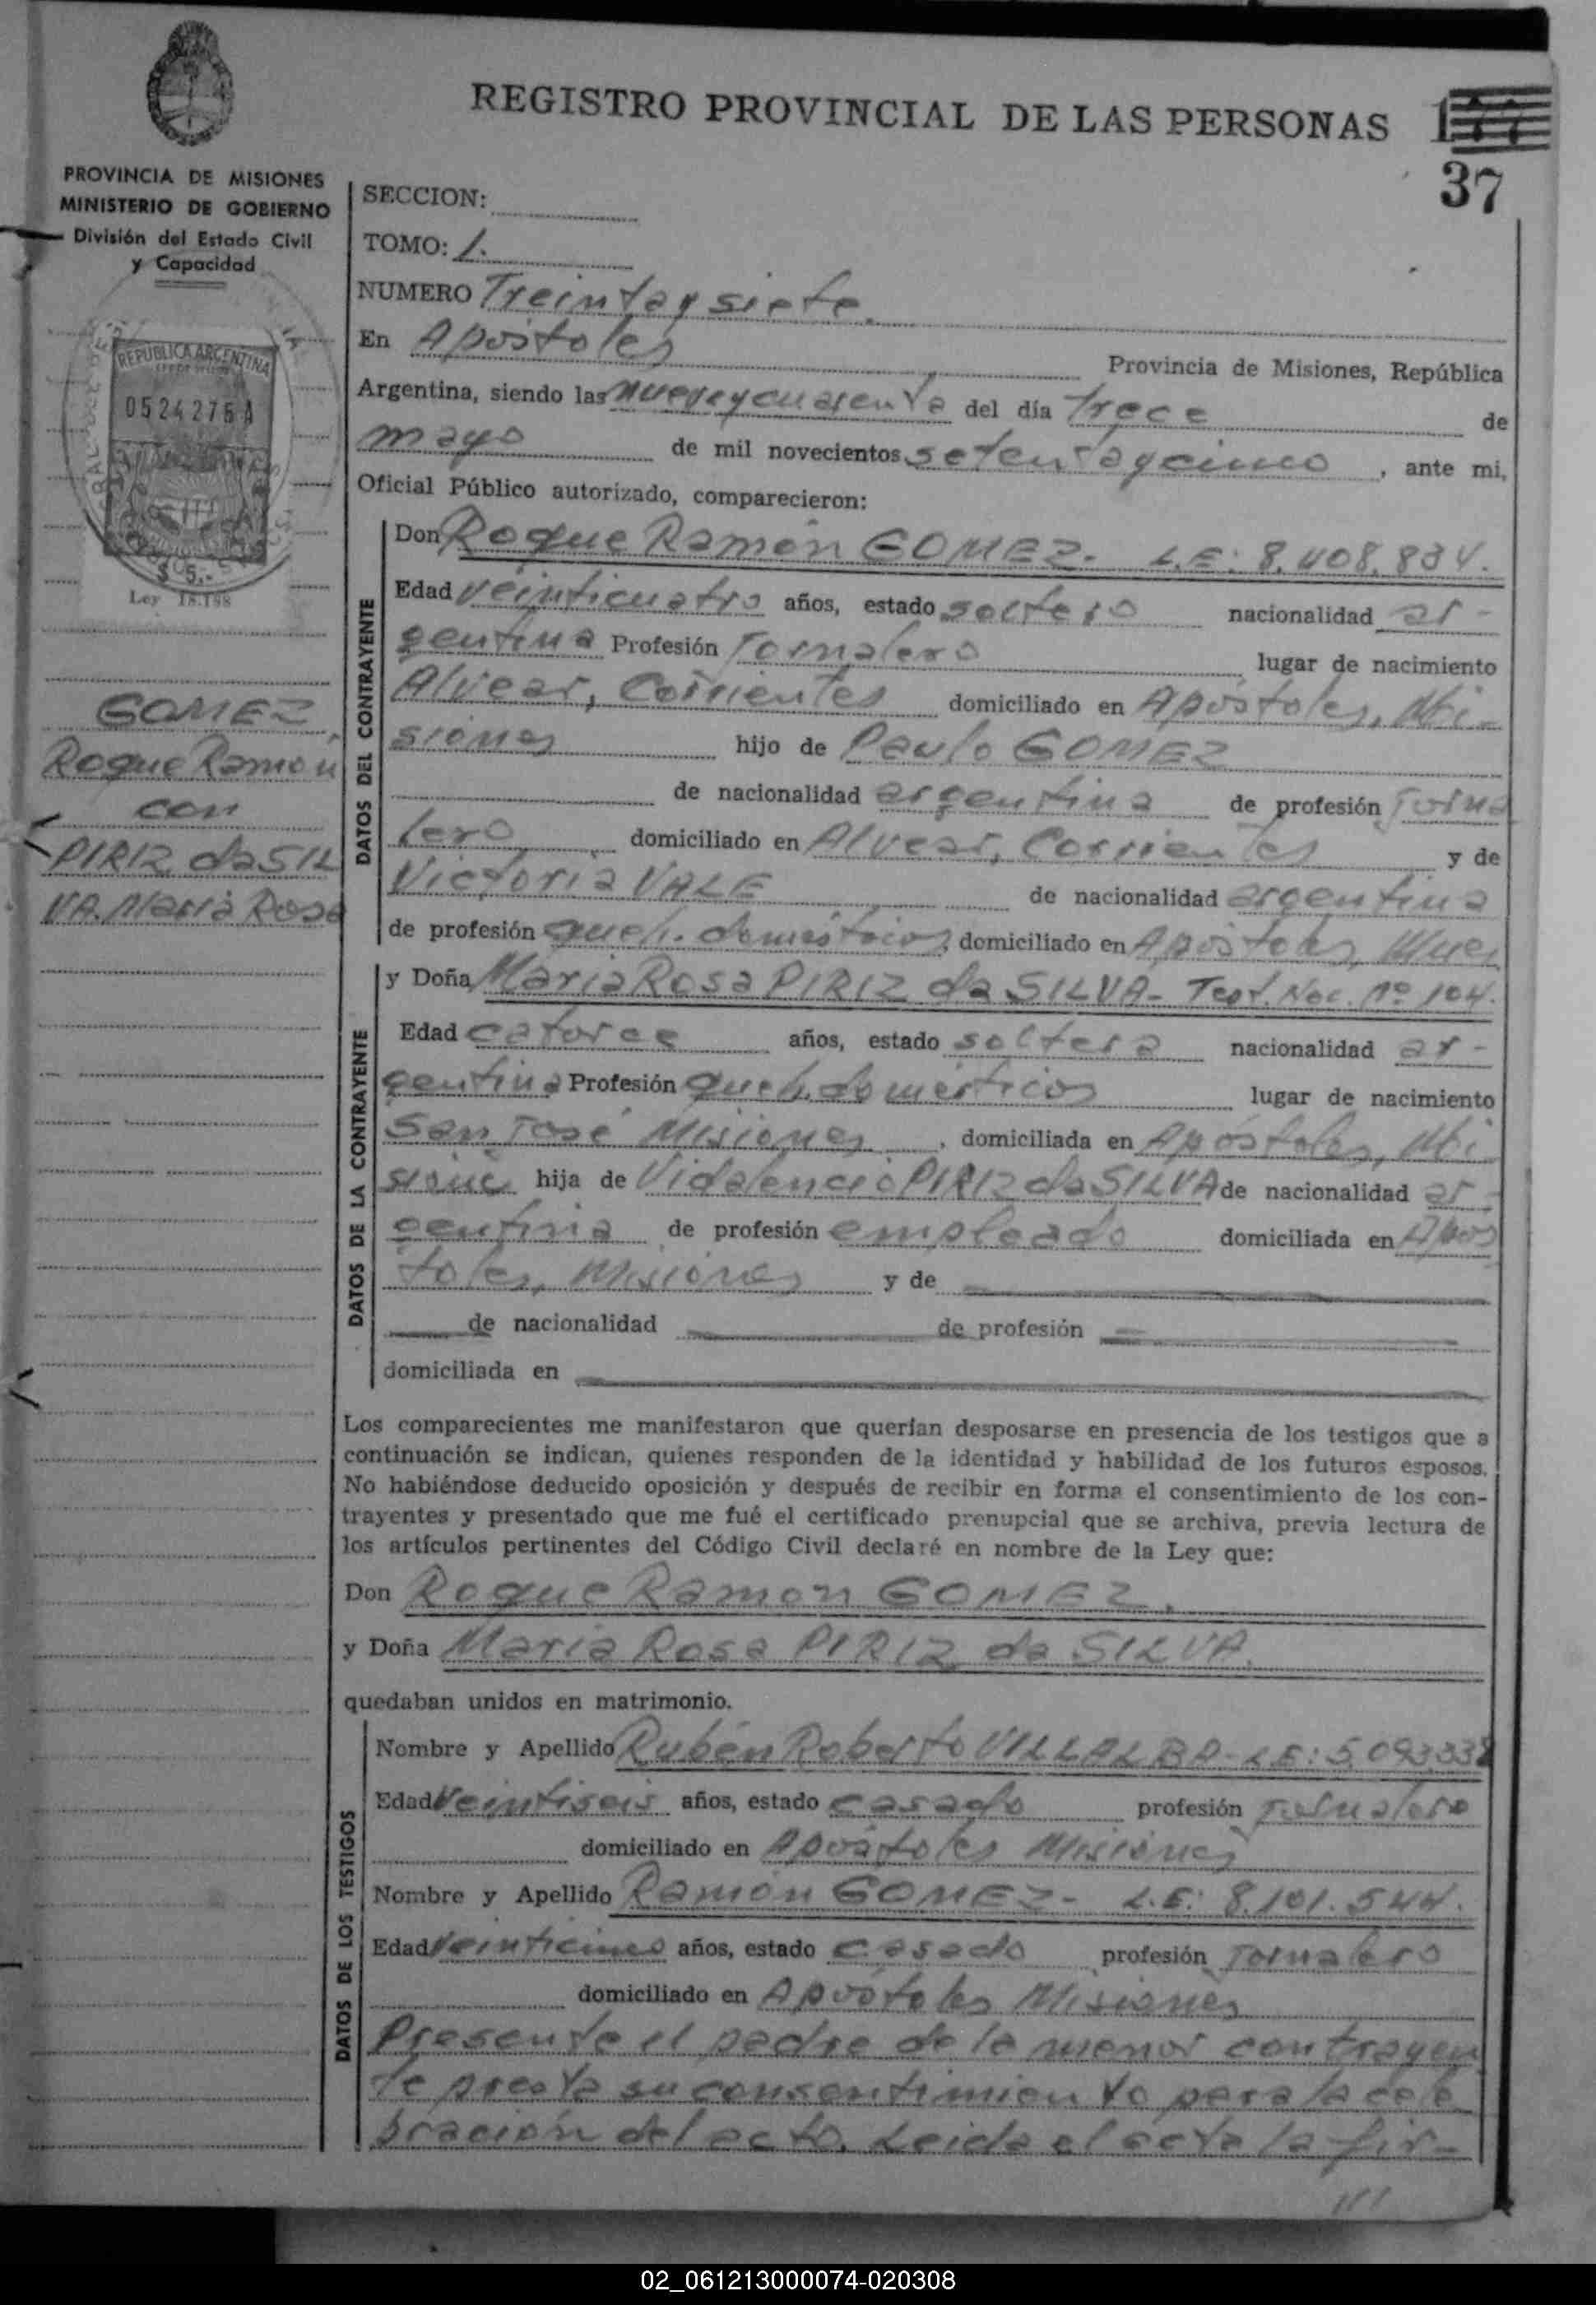 REGISTRO PROVINCIAL DE LAS PERSONAS 177
37
PROVINCIA DE MISIONES
MINISTERIO DE GOBIERNO
División del Estado Civil
y Capacidad
REPUBLICA ARGENTINA
0524275A
$ 5.-
Ley 18.188
GOMEZ,
Roque Ramón
con
PIRIZ da SIL
VA. María Rosa
SECCION:
TOMO: 1.
NUMERO Treinta y siete.
En Apóstoles Provincia de Misiones, República
Argentina, siendo las nueve y cuarenta del día trece de
mayo de mil novecientos setenta y cinco, ante mi,
Oficial Público autorizado, comparecieron:
DATOS DEL CONTRAYENTE
Don Roque Ramón GOMEZ- L.E: 8.408.834.
Edad veinticuatro años, estado soltero nacionalidad ar-
gentina Profesión Jornalero lugar de nacimiento
Alvear, Corrientes domiciliado en Apóstoles, Mi-
siones hijo de Paulo GOMEZ
de nacionalidad argentina de profesión Jorna
lero domiciliado en Alvear, Corrientes y de
Victoria VALE de nacionalidad argentina
de profesión queh. domésticos, domiciliado en Apóstoles,
DATOS DE LA CONTRAYENTE
y Doña María Rosa PIRIZ da SILVA- Test. Nac. Nº 104.
Edad catorce años, estado soltera nacionalidad ar-
gentina Profesión queh. domésticos lugar de nacimiento
San José Misiones, domiciliada en Apóstoles, Mi
siones hija de Vidalencio PIRIZ da SILVA de nacionalidad ar-
gentina de profesión empleado domiciliada en Após
toles, Misiones y de
de nacionalidad de profesión
domiciliada en
Los comparecientes me manifestaron que querían desposarse en presencia de los testigos que a
continuación se indican, quienes responden de la identidad y habilidad de los futuros esposos.
No habiéndose deducido oposición y después de recibir en forma el consentimiento de los con-
trayentes y presentado que me fué el certificado prenupcial que se archiva, previa lectura de
los artículos pertinentes del Código Civil declaré en nombre de la Ley que:
Don Roque Ramón GOMEZ.
y Doña María Rosa PIRIZ da SILVA.
quedaban unidos en matrimonio.
DATOS DE LOS TESTIGOS
Nombre y Apellido Rubén Roberto VILLALBA- L.E: 5.093.338
Edad veintiseis años, estado casado profesión Jornalero
domiciliado en Apóstoles Misiones
Nombre y Apellido Ramón GOMEZ- L.E: 8.101.544.
Edad veinticinco años, estado casado profesión Jornalero
domiciliado en Apóstoles Misiones
Presente el padre de la menor contrayen
te presta su consentimiento para la cele
bración del acto. Leida el acta la fir-
///
02_061213000074-020308